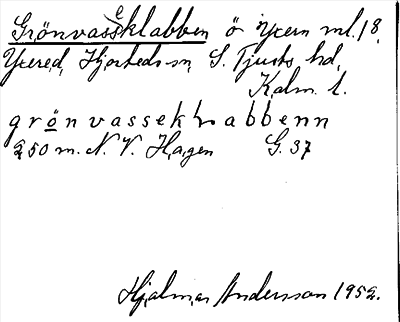 Grönvasseklabben ö Yxern ml. 18
Yxered, Hjorteds sn, S. Tjusts hd,
Kalm. l.
grönvasseklabbenn
250 m. N.V. Hagen G. 37
Hjalmar Andersson 1952.